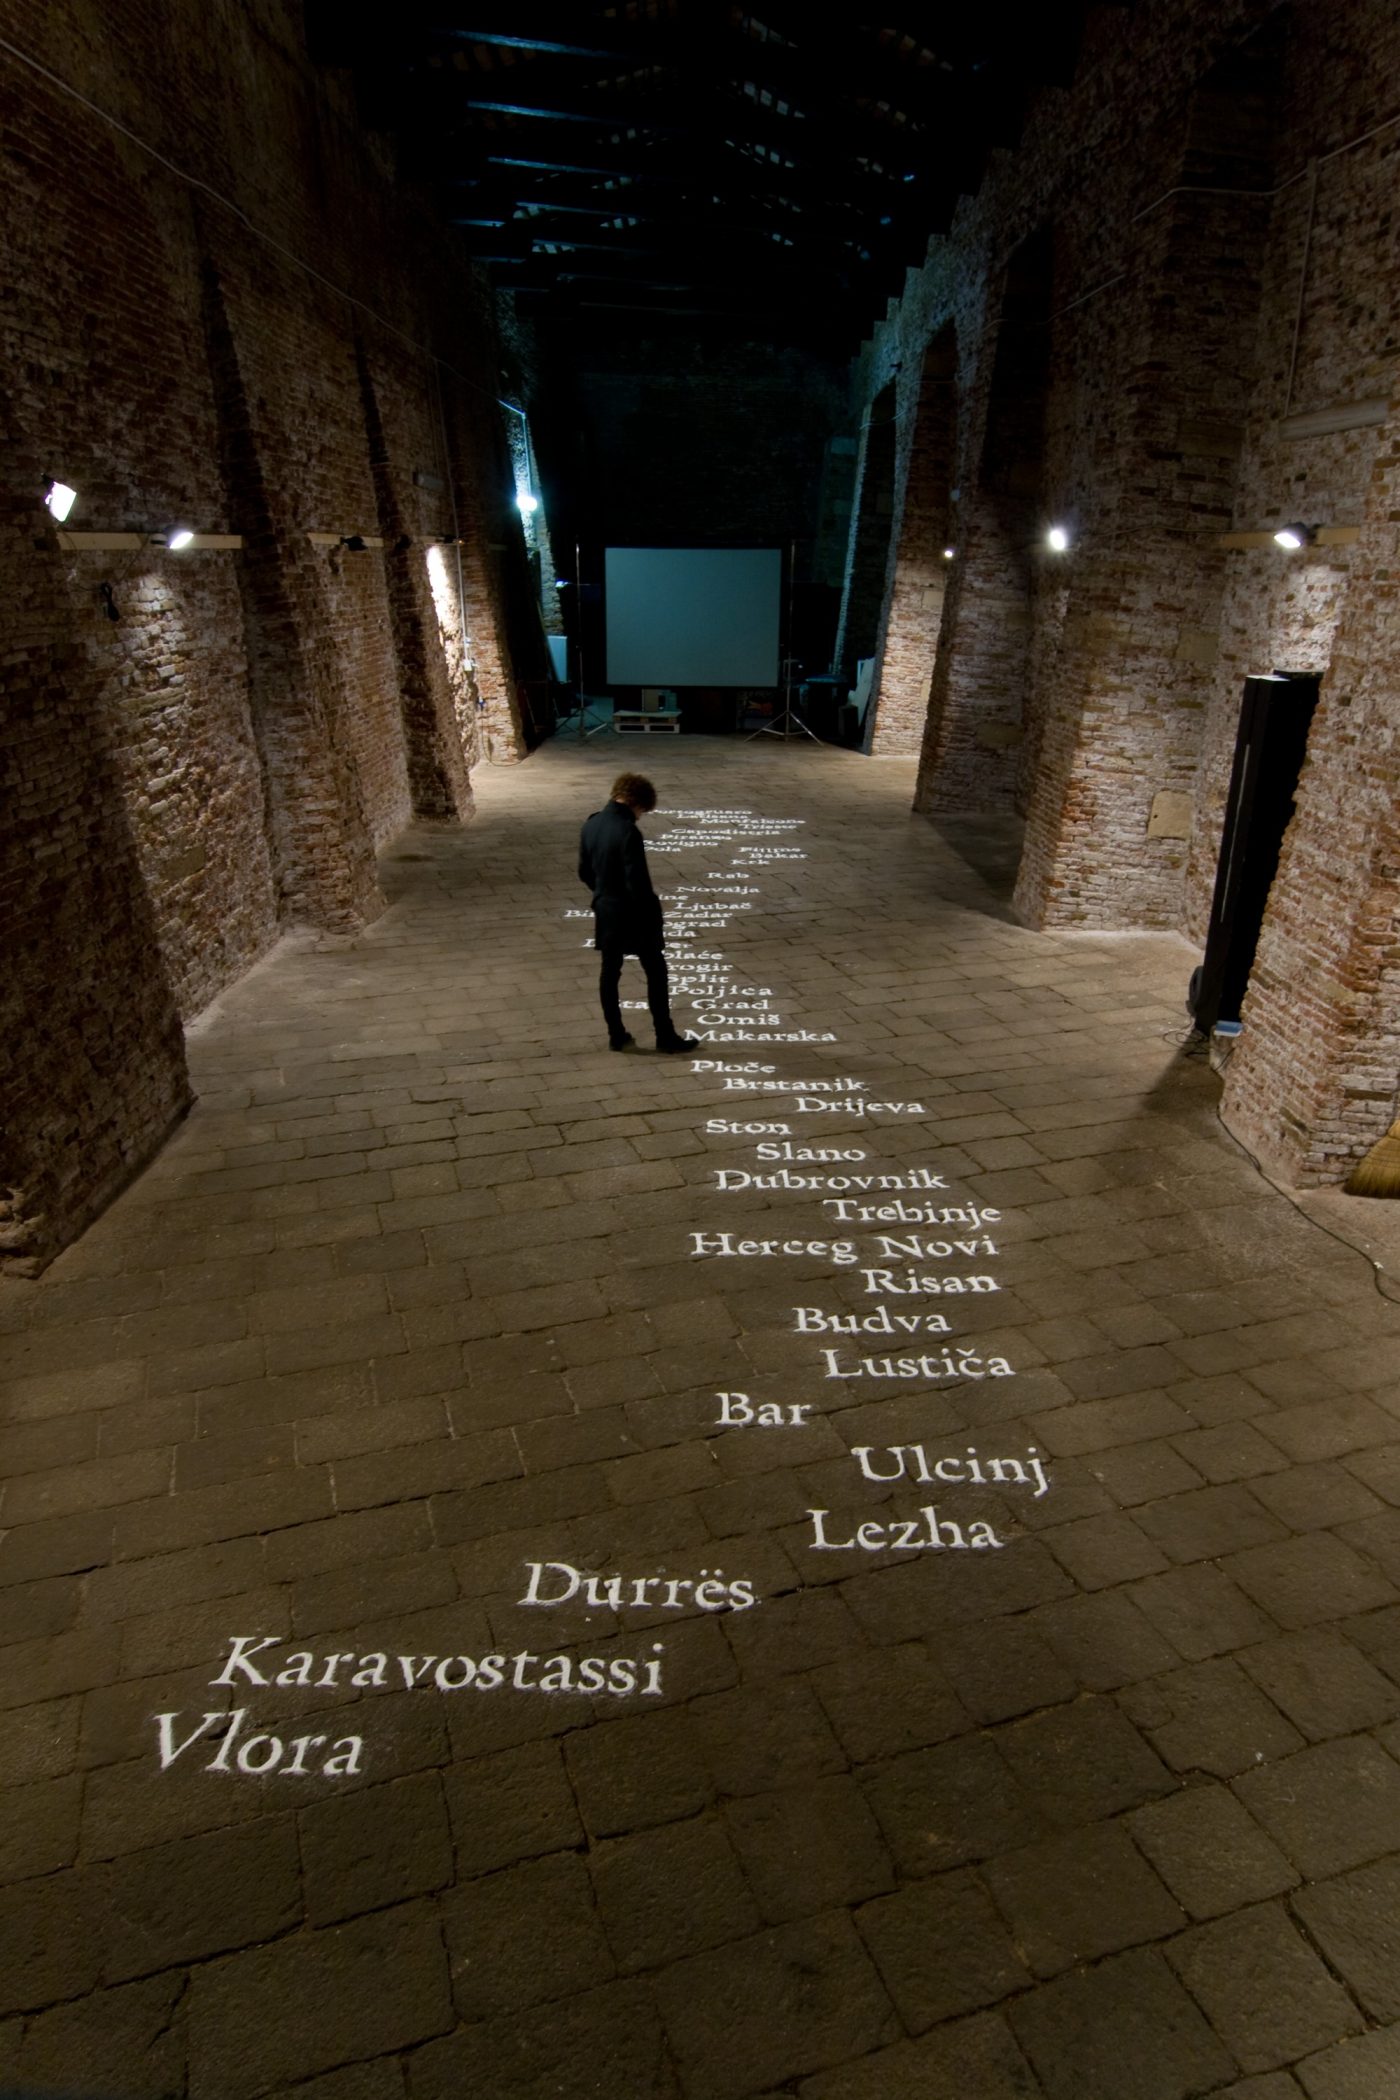 Portogruaro
Latisana
Monfalcone
Trieste
Capodistria
Piranzo
Rovigno
Pola Fiume
Bakar
Krk
Rab
Novalja
Ljubač
Zadar
Grad
Omiš
Split
Poljica
Makarska
Ploče
Brstanik
Drijeva
Ston
Slano
Dubrovnik
Trebinje
Herceg Novi
Risan
Budva
Lustiča
Bar
Ulcinj
Lezha
Durrës
Karavostassi
Vlora